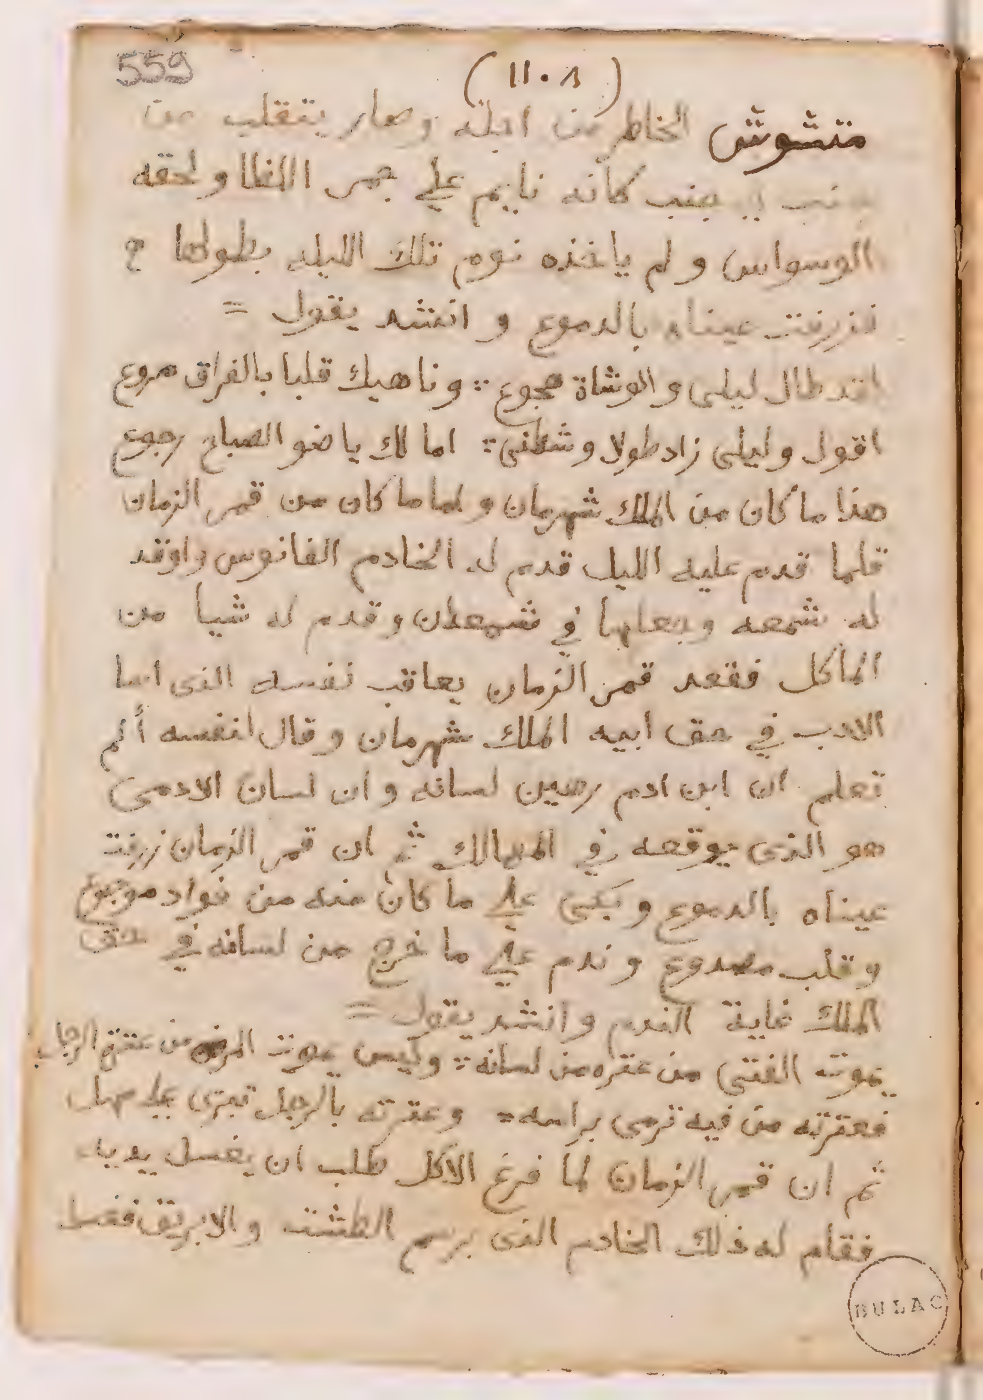 559
(١١٠٨)
متشوش الخاطر من اجله وصار يتقلب من
جنب الي جنب كأنه نايم علي جمر اللظا ولحقه
الوسواس و لم ياخذه نوم تلك الليله بطولها
فزرفت عيناه بالدموع و انشد يقول =
لقد طال ليلى و الوشاة هجوع ؛ وناهيك قلبا بالفراق مروع
اقول و ليلى زاد طولا و شطنى ؛ اما لك يا ضو الصباح رجوع
هذا ما كان من الملك شهرمان و اما ما كان من قمر الزمان
فلما قدم عليه الليل قدم له الخادم الفانوس واوقد
له شمعه وجعلها في شمعدان وقدم له شيا من
المأكل فقعد قمر الزمان يعاقب نفسه الذى اسا
الادب في حق ابيه الملك شهرمان و قال لنفسه ألم
تعلم ان ابن ادم رهين لسانه و ان لسان الادمى
هو الذى يوقعه في المهالك ثم ان قمر الزمان زرفت
عيناه بالدموع و بكى علي ما كان منه من فواد موجوع
و قلب مصدوع و ندم علي ما خرج من لسانه في حق
الملك غاية الندم و انشد يقول =
يموت الفتى من عتره من لسانه ؛ وليس يموت المرء من عترة الرجل
فعترته من فيه ترمى براسه = وعترته بالرجل تبرى علي مهل
ثم ان قمر الزمان لما فرغ الاكل طلب ان يغسل يديه
فقام له ذلك الخادم الذى برسم الطشت و الابريق فغسل
BULAC